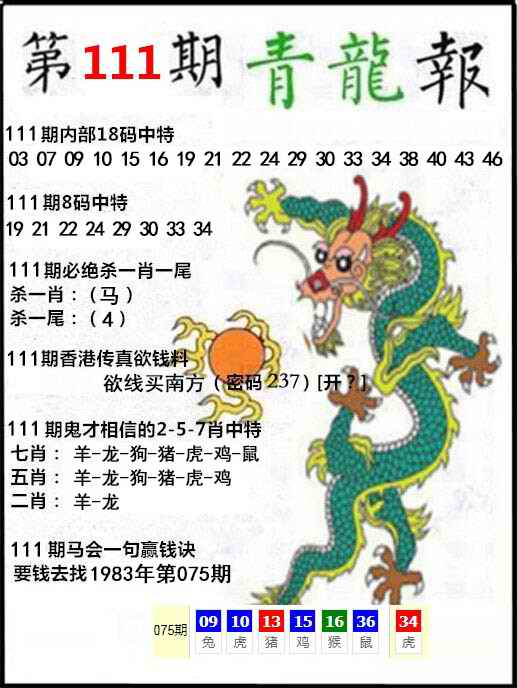 第111期青龍報
111期内部18码中特
03 07 09 10 15 16 19 21 22 24 29 30 33 34 38 40 43 46
111期8码中特
19 21 22 24 29 30 33 34
111期必绝杀一肖一尾
杀一肖：（马）
杀一尾：（4）
111期香港传真欲钱料
欲线买南方（密码237）[开？]
111期鬼才相信的2-5-7肖中特
七肖： 羊-龙-狗-猪-虎-鸡-鼠
五肖： 羊-龙-狗-猪-虎-鸡
二肖： 羊-龙
111期马会一句赢钱诀
要钱去找1983年第075期
075期 09 10 13 15 16 36 34
兔 虎 猪 鸡 猴 鼠 虎